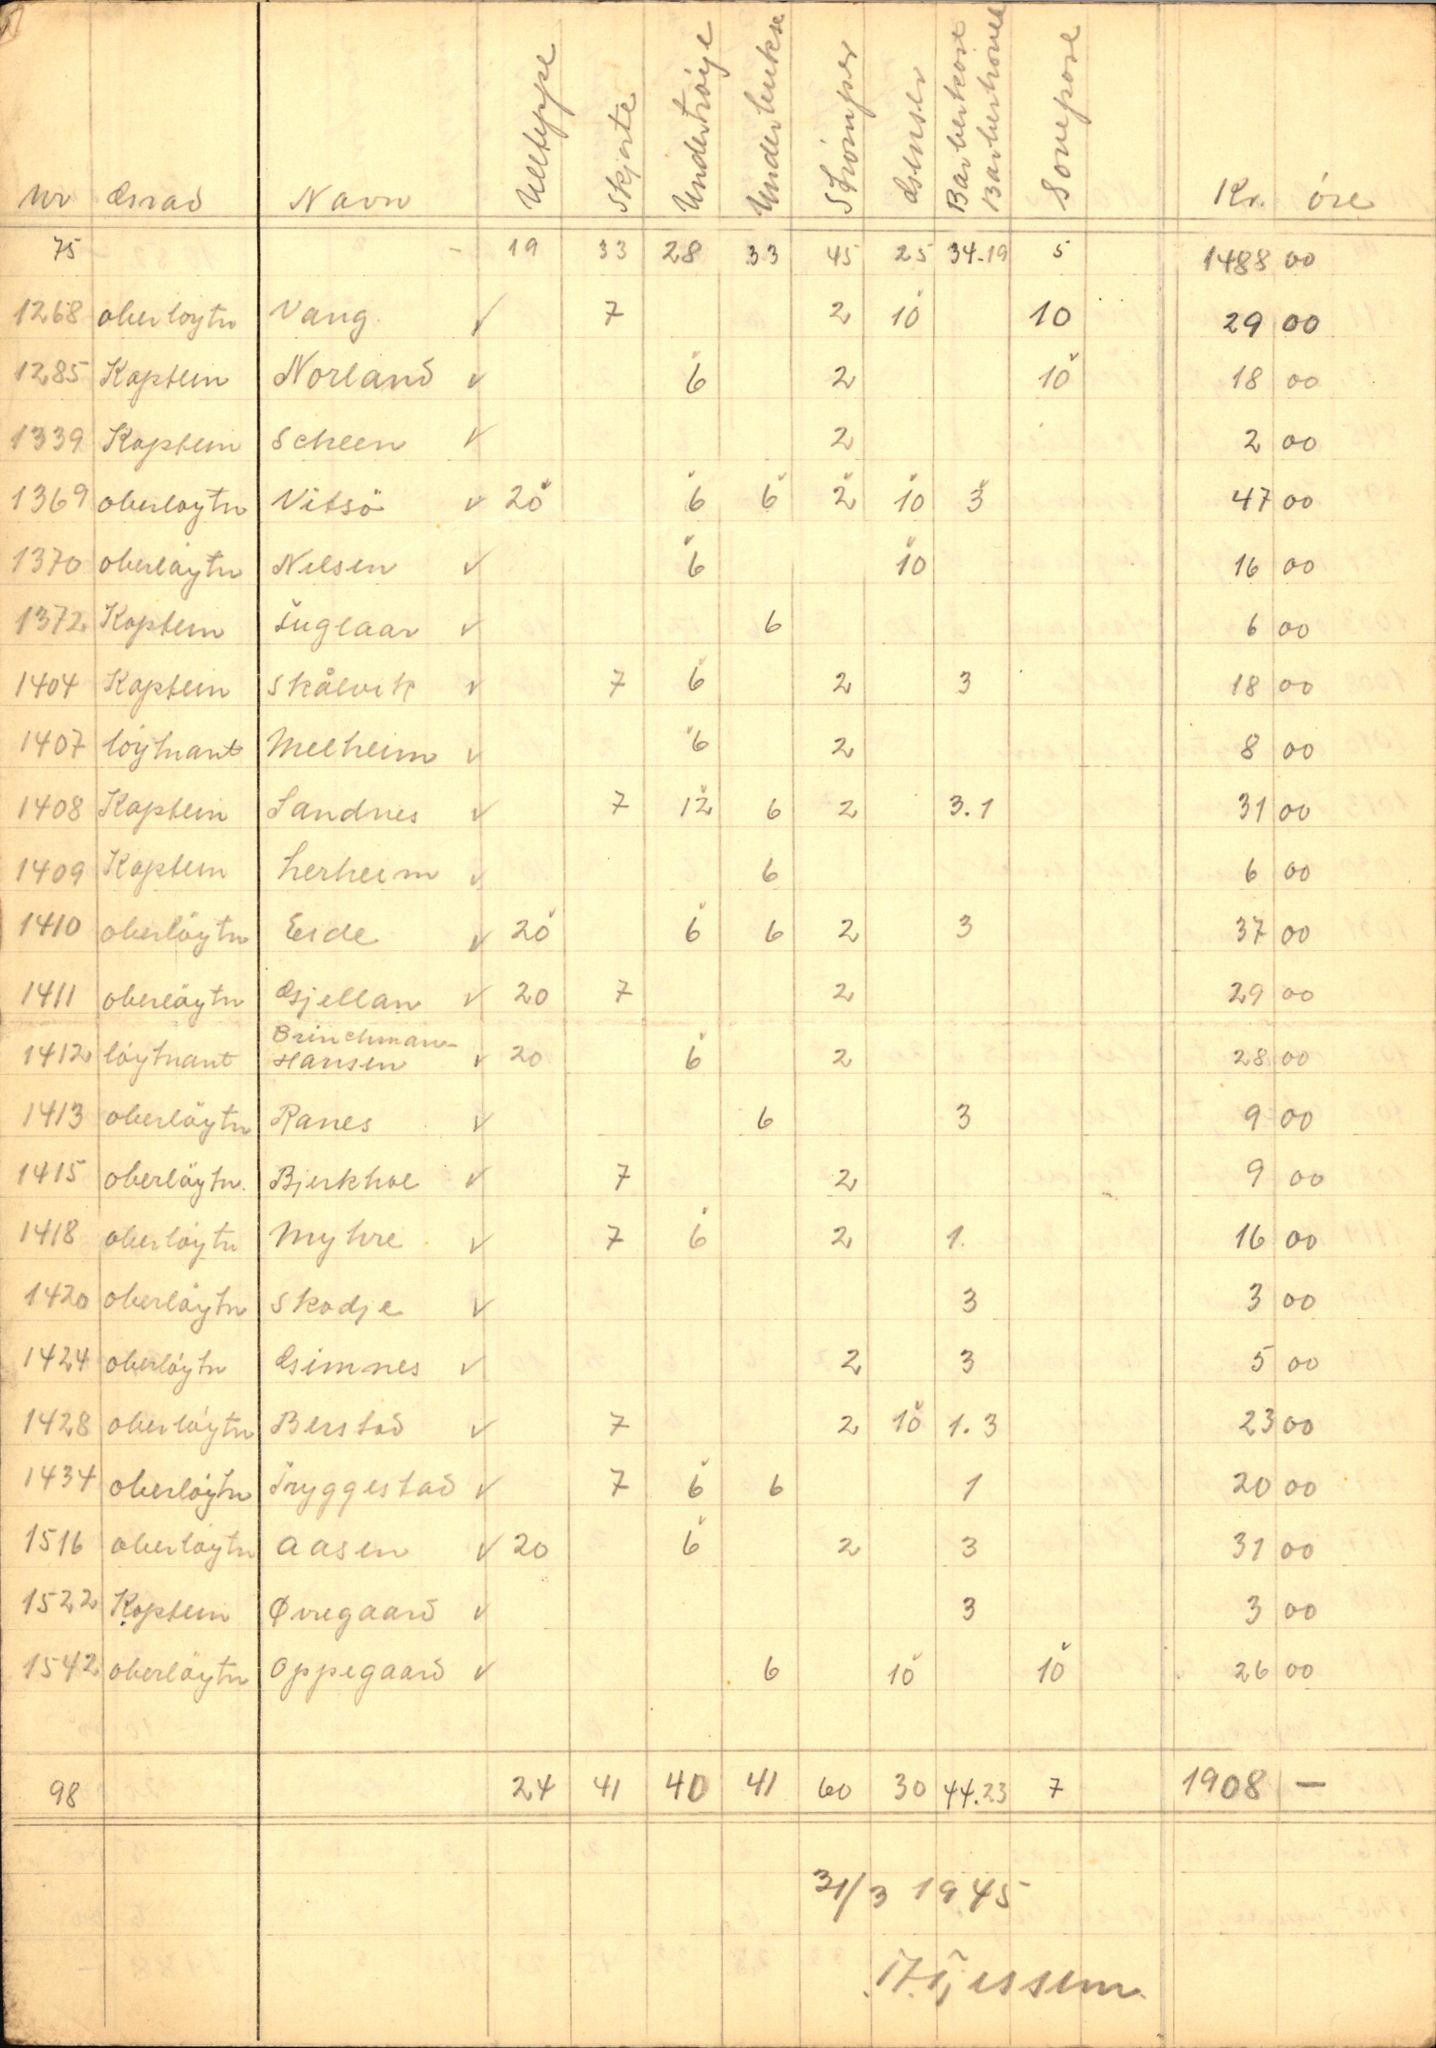 Nr Grad Navn Ullteppe Skjorte Undertröye Underbukse Strömper Genser Barberkost Barberhövel Sovepose Kr. öre
75 - 19 33 28 33 45 25 34-19 5 1488 00
1268 oberløytn Vang ✓ 7 2 10 10 29 00
1285 Kaptein Norland ✓ 6 2 10 18 00
1339 Kaptein Scheen ✓ 2 2 00
1369 oberløytn Vitsö ✓ 20 6 6 2 10 3 47 00
1370 oberløytn Nilsen ✓ 6 10 16 00
1372 Kaptein Fuglaar ✓ 6 6 00
1404 Kaptein Skålvik ✓ 7 6 2 3 18 00
1407 löytnant Melheim ✓ 6 2 8 00
1408 Kaptein Sandnes ✓ 7 12 6 2 3.1 31 00
1409 Kaptein Lerheim ✓ 6 6 00
1410 oberlöytn Eide ✓ 20 6 6 2 3 37 00
1411 oberlöytn Gjellan ✓ 20 7 2 29 00
Brinchman-
1412 löytnant Hansen ✓ 20 6 2 28 00
1413 oberlöytn Ranes ✓ 6 3 9 00
1415 oberlöytn. Bjerkhol ✓ 7 2 9 00
1418 oberløytn Myhre ✓ 7 6 2 1. 16 00
1420 oberlöytn Skodje ✓ 3 3 00
1424 oberlöytn Gimnes ✓ 2 3 5 00
1428 oberløytn Berstad ✓ 7 2 10 1. 3 23 00
1434 oberløytn Tryggestad ✓ 7 6 6 1 20 00
1516 oberløytn Aasen ✓ 20 6 2 3 31 00
1522 Kaptein Øvregaard ✓ 3 3 00
1542 oberlöytn Oppegaard ✓ 6 10 10 26 00
98 24 41 40 41 60 30 44.23 7 1908 —
31/3 1945